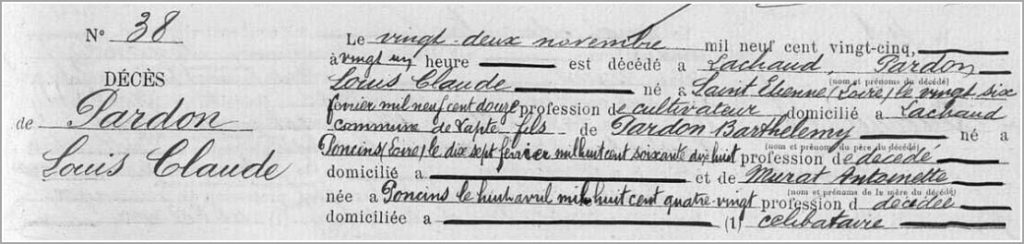 N° 38
DÉCÈS
de Pardon
Louis Claude
Le vingt deux novembre mil neuf cent vingt-cinq,
à vingt un heure est décédé a Lachaud, Pardon
(nom et prénoms du décédé)
Louis Claude né a Saint Etienne (Loire) le vingt six
février mil neuf cent douze profession de cultivateur domicilié a Lachaud
commune de fils de Pardon Barthelemy né a
(nom et prénoms du père du décédé)
Poncins (Loire) le dix sept février mil huit cent soixante dix huit profession de décédé
domicilié a et de Murat Antoinette
(nom et prénoms de la mère du décédé)
née a Poncins le huit avril mil huit cent quatre-vingt profession d décédée
domiciliée a (1) célibataire